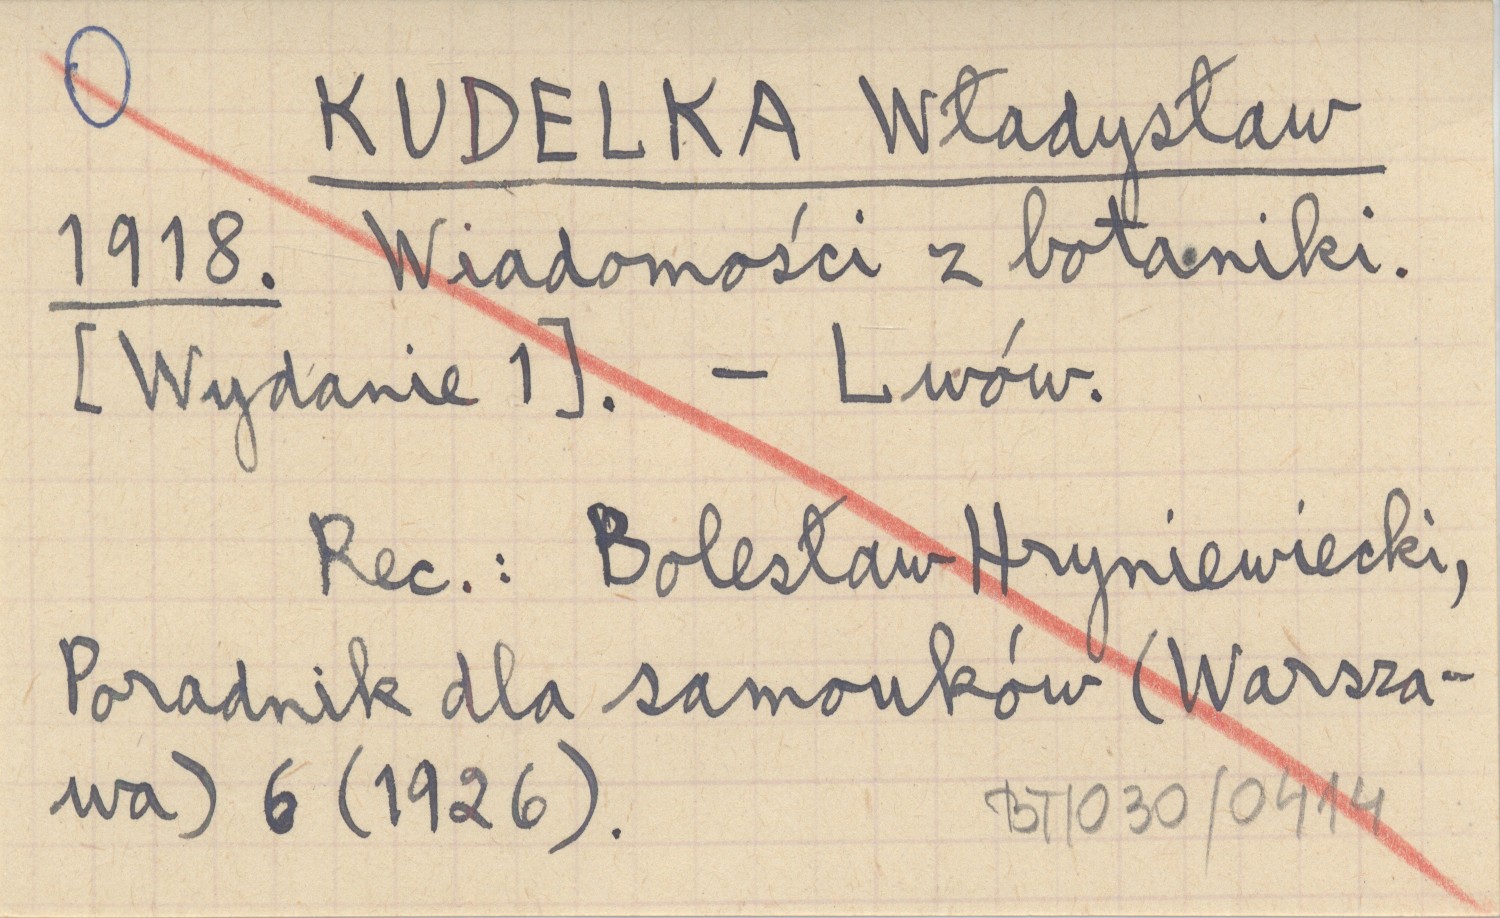 KUDELKA Władysław
1918. Wiadomości z botaniki.
[Wydanie 1]. – Lwów.
Rec.: Bolesław Hryniewiecki,
Poradnik dla samouków (Warsza-
wa) 6 (1926).
BT/030/0414